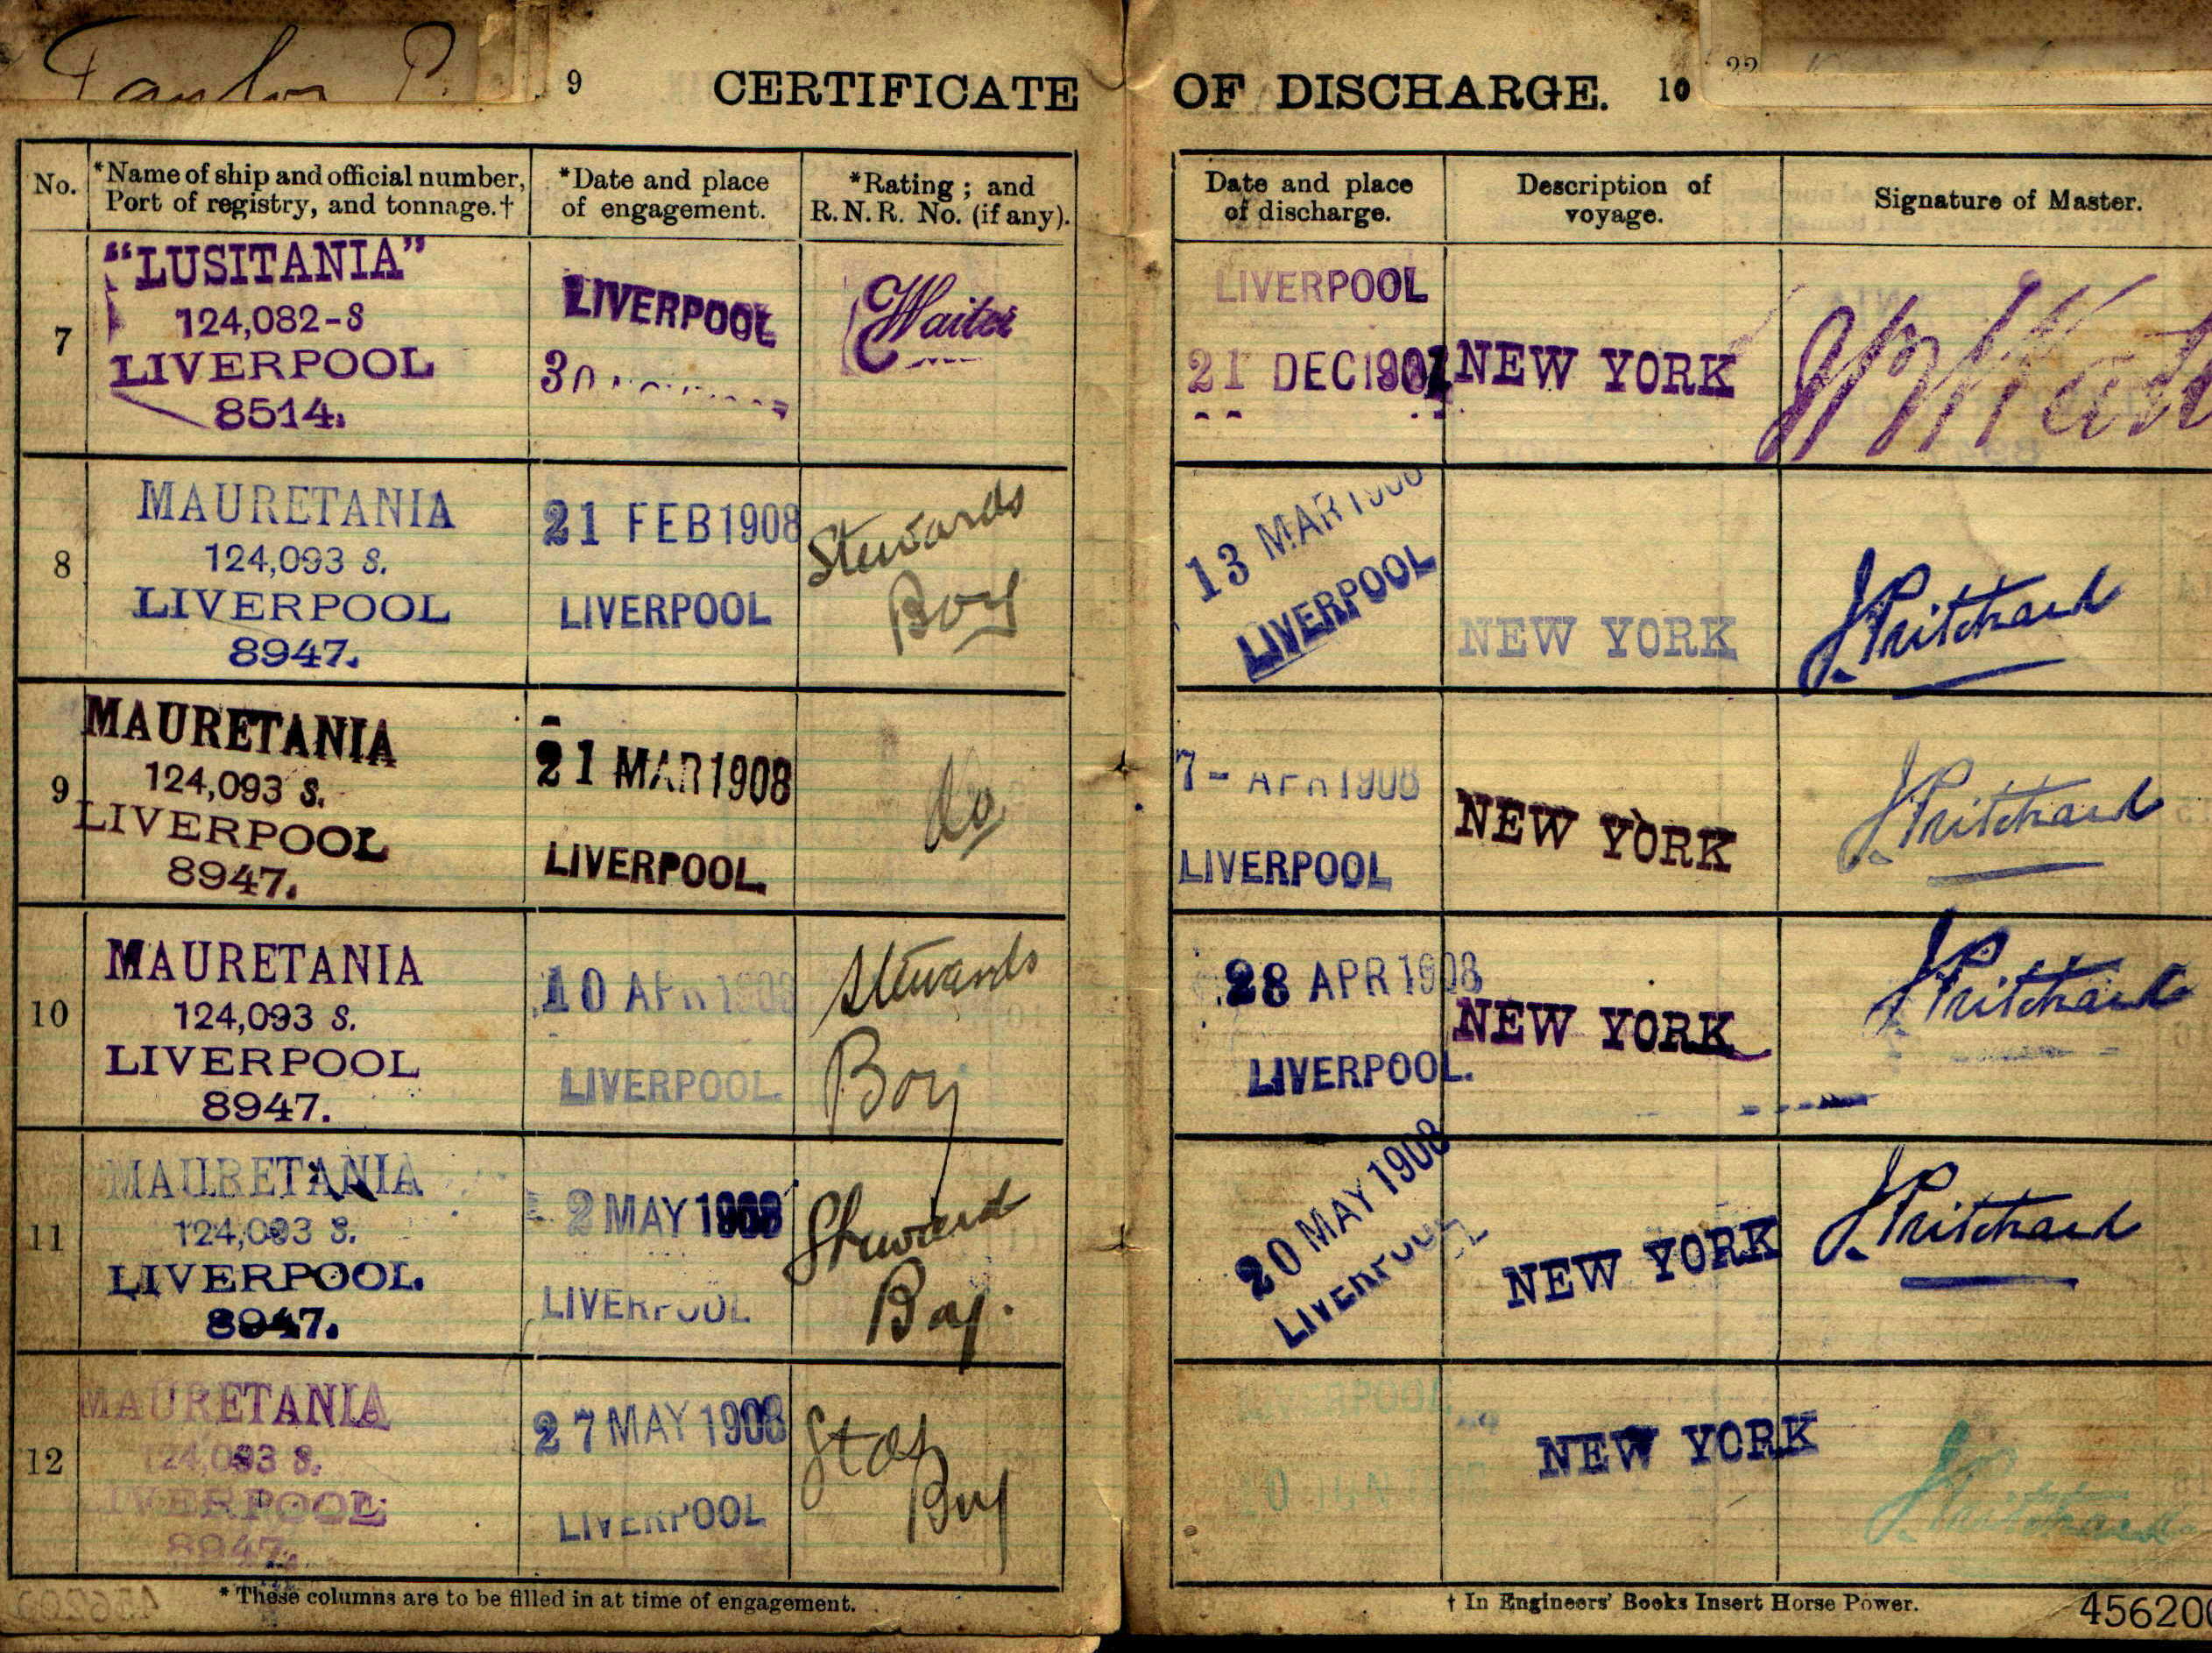 Taylor P.
9 CERTIFICATE OF DISCHARGE. 10
22
No.
*Name of ship and official number,
Port of registry, and tonnage.†
*Date and place
of engagement.
*Rating; and
R.N.R. No. (if any).
Date and place
of discharge.
Description of
voyage.
Signature of Master.
7
"LUSITANIA"
124,082-S
LIVERPOOL
8514.
LIVERPOOL
30
Waiter
LIVERPOOL
21 DEC 1907
NEW YORK
8
MAURETANIA
124,093 S.
LIVERPOOL
8947.
21 FEB 1908
LIVERPOOL
Stewards
Boy
13 MAR 1908
LIVERPOOL
NEW YORK
J. Pritchard
9
MAURETANIA
124,093 S.
LIVERPOOL
8947.
21 MAR 1908
LIVERPOOL.
do
7- APR 1908
LIVERPOOL
NEW YORK
J. Pritchard
10
MAURETANIA
124,093 S.
LIVERPOOL
8947.
10 APR 1908
LIVERPOOL.
Stewards
Boy
28 APR 1908
LIVERPOOL.
NEW YORK
J. Pritchard
11
MAURETANIA
124,093 S.
LIVERPOOL.
8947.
2 MAY 1908
LIVERPOOL
Steward
Boy.
20 MAY 1908
LIVERPOOL
NEW YORK
J. Pritchard
12
MAURETANIA
124,093 S.
LIVERPOOL
8947.
27 MAY 1908
LIVERPOOL
Boy
LIVERPOOL
10 JUN
NEW YORK
J. Pritchard
* These columns are to be filled in at time of engagement.
† In Engineers' Books Insert Horse Power.
456200